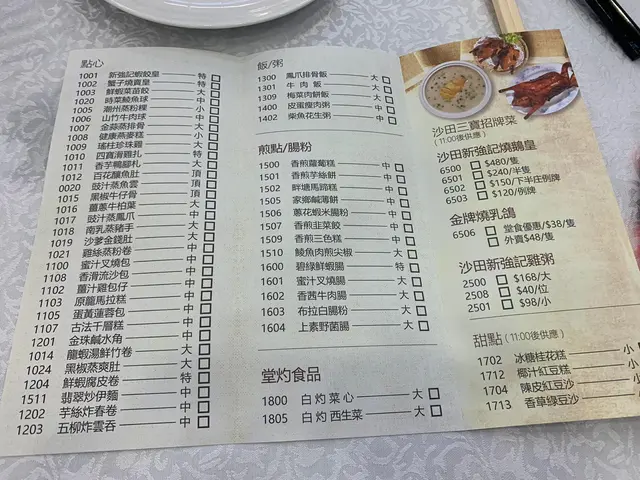 點心
1001 新強記蝦餃皇 特
1002 蟹子燒賣皇 特
1003 鮮蝦菜苗餃 大
1020 時菜鯪魚球 中
1005 潮州蒸粉粿 小
1006 山竹牛肉球 中
1007 金蒜蒸排骨 小
1008 健康燕麥糕 小
1009 瑤柱珍珠雞 大
1010 四寶滑雞扎 特
1011 香芋鴨腳札 大
1012 百花釀魚肚 頂
0020 豉汁蒸魚雲 頂
1015 黑椒牛仔骨 大
1016 薑蔥牛柏葉 大
1017 豉汁蒸鳳爪 中
1018 南乳蒸豬手 大
1019 沙爹金錢肚 中
1021 雞絲蒸粉卷 中
1100 蜜汁叉燒包 中
1108 香滑流沙包 中
1102 薑汁雞包仔 中
1103 原籠馬拉糕 中
1105 蛋黃蓮蓉包 中
1107 古法千層糕 中
1201 金珠鹹水角 中
1014 龍蝦湯鮮竹卷 大
1024 黑椒蒸爽肚 大
1204 鮮蝦腐皮卷 特
1511 翡翠炒伊麵 中
1202 芋絲炸春卷 中
1203 五柳炸雲吞 中
飯/粥
1300 鳳爪排骨飯 大
1301 牛肉飯 大
1309 梅菜肉餅飯 大
1400 皮蛋瘦肉粥 中
1402 柴魚花生粥 中
煎點/腸粉
1500 香煎蘿蔔糕 中
1501 香煎芋絲餅 中
1502 畔塘馬蹄糕 中
1505 家鄉鹹薄餅 中
1506 蔥花蝦米腸粉 中
1507 香煎韭菜餃 中
1509 香煎三色糕 中
1510 鯪魚肉煎尖椒 大
1600 碧綠鮮蝦腸 特
1601 蜜汁叉燒腸 大
1602 香茜牛肉腸 大
1603 布拉白腸粉 大
1604 上素野菌腸 大
堂灼食品
1800 白灼菜心 大
1805 白灼西生菜 大
沙田三寶招牌菜
(11:00後供應)
沙田新強記燒鵝皇
6500 $480/隻
6501 $240/半隻
6502 $150/下半庄例牌
6503 $120/例牌
金牌燒乳鴿
6506 堂食優惠/$38/隻
外賣$48/隻
沙田新強記雞粥
2500 $168/大
2508 $40/位
2501 $98/小
甜點(11:00後供應)
1702 冰糖桂花糕 小
1712 椰汁紅豆糕 小
1704 陳皮紅豆沙 小
1713 香草綠豆沙 小